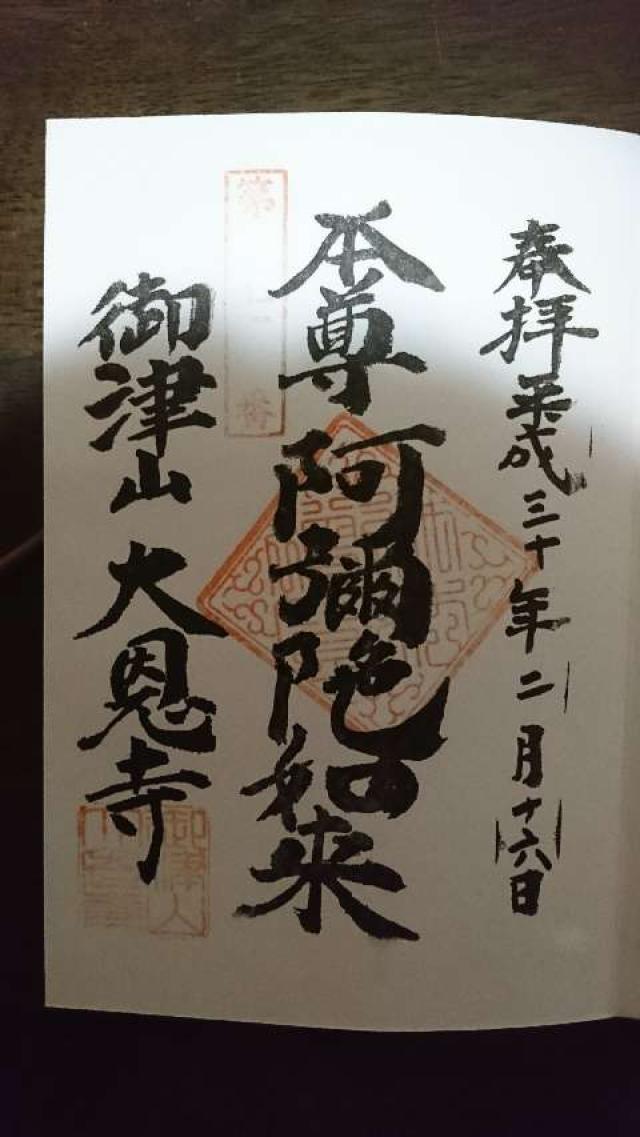 奉拝平成三十年二月十六日
本尊阿彌陀如来
御津山大恩寺